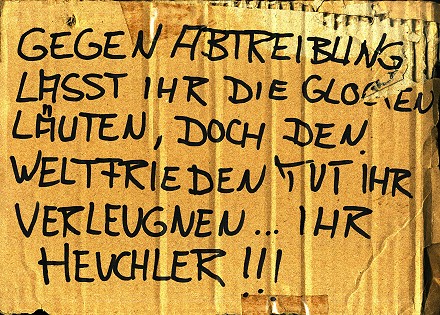 GEGEN ABTREIBUNG
LASST IHR DIE GLOCKEN
LÄUTEN, DOCH DEN
WELTFRIEDEN TUT IHR
VERLEUGNEN... IHR
HEUCHLER !!!